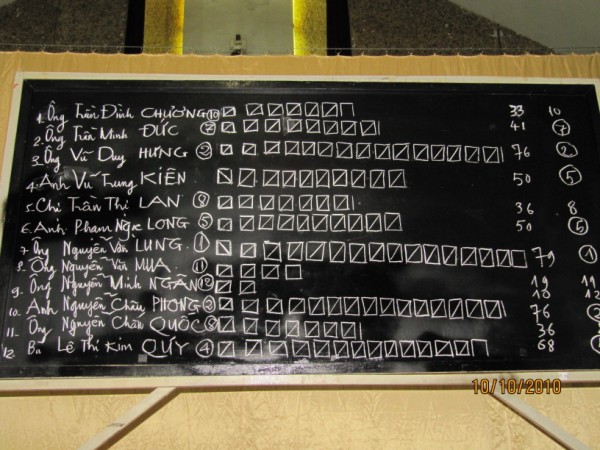 1. Ông Trần Đình CHƯƠNG 10 33 10
2. Ông Trần Minh ĐỨC 7 41 7
3. Ông Vũ Duy HƯNG 2 76 2
4. Anh Vũ Trung KIÊN 50 5
5. Chị Trần Thị LAN 8 36 8
6. Anh Phạm Ngọc LONG 5 50 5
7. Ông Nguyễn Văn LUNG 1 79 1
8. Ông Nguyễn Văn MUA 11 19 11
9. Ông Nguyễn Minh NGÂN 12 10 12
10. Anh Nguyễn Châu PHONG 2 76 2
11. Ông Nguyễn Chấn QUỐC 8 36 8
12. Bà Lê Thị Kim QUÝ 4 68
10/10/2010